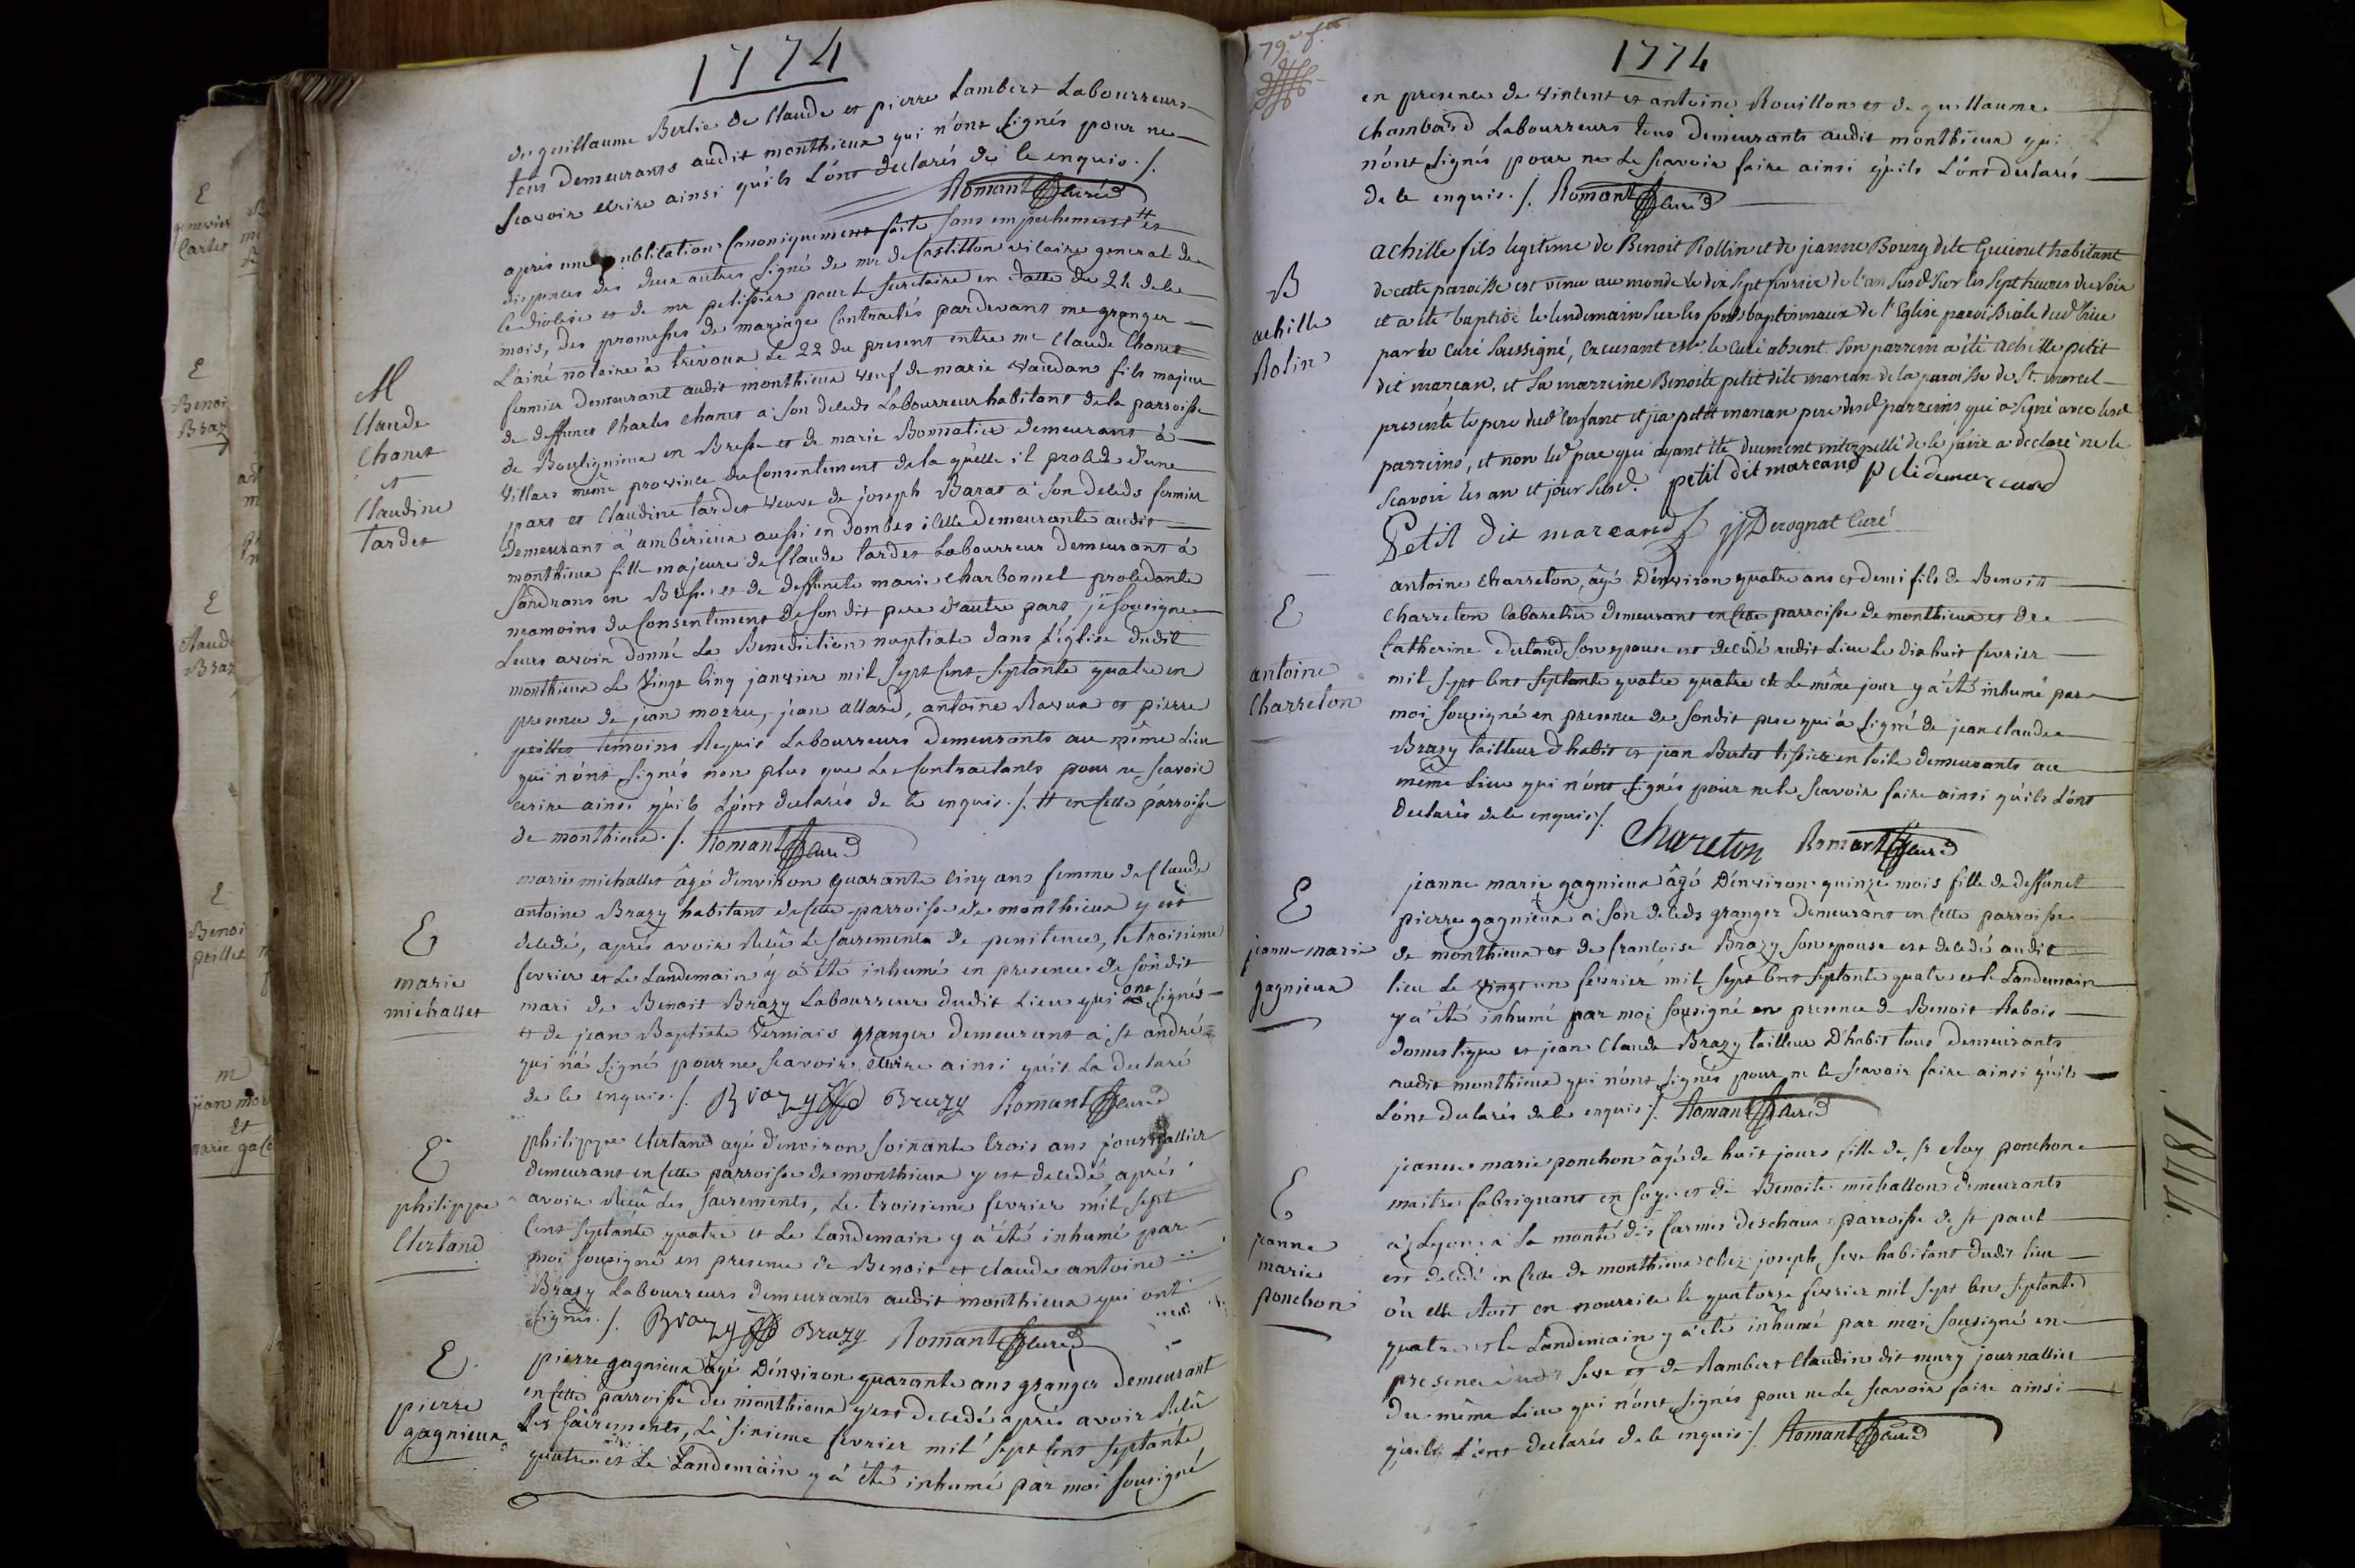 1774
de guillaume Berlie de Claude et pierre Lambert Labourreurs
tous demeurants audit monthieux qui n'ont signés pour ne
scavoir ecrire ainsi qu'ils L'ont declarés de le enquis ./.
Romant Curé
M
Claude
Chanet
et
Claudine
tardet
après une publication Canoniquement faite sans empechements # et
dispences des deux autres signé de mr de Castillon vicaire general de
ce diocese et de mr pelissier pour le secretaire en datte du 24 de ce
mois, des promesses de mariage Contractés pardevant me granger
L'ainé notaire à trevoux Le 22 du present entre me Claude Chanet
fermier demeurant audit monthieux veuf de marie vaudan fils majeur
de deffunct Charles Chanet a son deceds Labourreur habitant de la parroisse
de Bouligneux en Bresse et de marie Bonnatier demeurant à
Villars même province du Consentement de la quelle il procede d'une
part et Claudine tardet veuve de joseph Barat a son deceds fermier
demeurant à amberieux aussi en dombes icelle demeurante audit
monthieux fille majeure de Claude tardet Labourreur demeurant à
Sandrans en Bresse et de deffuncte marie charbonnet procedante
neamoins du Consentement de son dit pere d'autre part, je sousigne
Leurs avoir donné La Benediction nuptiale dans L'église dudit
monthieux Le vingt Cinq janvier mil sept Cent septante quatre en
presence de jean morru, jean allard, antoine Ravux et pierre
peillet temoins Requis Labourreurs demeurants au même Lieu
qui n'ont signés non plus que Les Contractants pour ne scavoir
ecrire ainsi qu'ils L'ont declarés de le enquis ./. # en Cette parroisse
de monthieux ./. Romant Curé
E
marie
michallet
marie michallet âgé d'environ quarante Cinq ans femme de Claude
antoine Brazy habitant de Cette parroisse de monthieux y est
decedé, après avoir Reçû Le sacrements de penitence, le troisieme
fevrier et Le Landemain y à été inhumé en presence de son dit
mari de Benoit Brazy Labourreur dudit Lieu qui ont signés
et de jean Baptiste Verniais granger demeurant à st andré
qui n'a signé pour ne scavoir ecrire ainsi qu'il La declaré
de le enquis ./. Brazy Brazy Romant Curé
E
philippe
Clertand
philippe Clertand agé d'environ soixante trois ans journallier
demeurant en Cette parroisse de monthieux y est decedé, après
avoir Reçû Les sacrements, Le troisieme fevrier mil sept
Cent septante quatre et Le Landemain y à été inhumé par
moi sousigné en presence de Benoit et Claude antoine
Brazy Labourreurs demeurants audit monthieux qui ont
signés ./. Brazy Brazy Romant Curé
E
pierre
gagnieux
pierre gagnieux âgé D'environ quarante ans granger demeurant
en Cette parroisse de monthieux y est decedé après avoir Reçû
Les sacrements, Le sixieme fevrier mil sept Cent septante
quatre et Le Landemain y à été inhumé par moi sousigné
1774
en presence de vincent et antoine Rouillon et de guillaume
Chambard Labourreurs tous demeurants audit monthieux qui
n'ont signés pour ne Le scavoir faire ainsi qu'ils L'ont declarés
de le enquis ./. Romant Curé
B
achille
Rolin
achille fils legitime de Benoit Rollin et de jeanne Bourg dite Guionet habitant
de cette paroisse est venu au monde le dix sept fevrier de l'an susd. sur les sept heures du soir
et a été baptisé le lendemain sur les fonds baptismaux de l'Eglise paroissiale dud. lieu
par le curé soussigné, le curé absent. son parrein a été achille petit
dit marcan, et sa marreine Benoite petit dite marcan de la paroisse de St. marcel
presenté le pere dud. enfant et petit marcan pere desd. parreins qui a signé avec lesd.
parreins, et non led. pere qui ayant été duement interpellé de le faire a declaré ne le
scavoir les an et jour susd. petit dit marcand
Petit dit marcand Derognat Curé
E
antoine
Charreton
antoine Charreton, âgé D'environ quatre ans et demi fils de Benoit
Charreton Cabaretier demeurant en Cette parroisse de monthieux et de
Catherine Duland son epouse est decedé audit Lieu Le dix huit fevrier
mil sept Cent septante quatre quatre et Le même jour y à été inhumé par
moi sousigné en presence de sondit pere qui à signé de jean Claude
Brazy tailleur d'habit et jean Bertet tissier en toile demeurants au
même Lieu qui n'ont signés pour ne le scavoir faire ainsi qu'ils L'ont
declarés de le enquis ./.
Chareton Romant Curé
E
jeanne marie
gagnieux
jeanne marie gagnieux âgé D'environ quinze mois fille de deffunct
pierre gagnieux a son deceds granger demeurant en Cette parroisse
de monthieux et de francoise Brazy son epouse est decedé audit
lieu Le vingt un fevrier mil sept Cent septante quatre et le Landemain
y à été inhumé par moi sousigné en presence de Benoit Rabois
domestique et jean Claude Brazy tailleur D'habit tous demeurants
audit monthieux qui n'ont signés pour ne le scavoir faire ainsi qu'ils
L'ont declarés de le enquis ./. Romant Curé
E
jeanne
marie
ponchon
jeanne marie ponchon âgé de huit jours fille de sr eloy ponchon
maitre fabriquant en soye et de Benoite michallon demeurants
à Lyon à La monté des Carmes deschaux parroisse de st paul
est decedé en Cette de monthieux chez joseph seve habitant dudit lieu
où elle étoit en nourrice le quatorze fevrier mil sept Cent septante
quatre et le Landemain y à été inhumé par moi sousigné en
presence dudit seve et de Rambert Claudin dit mury journallier
du même Lieu qui n'ont signés pour ne Le scavoir faire ainsi
qu'ils L'ont declarés de le enquis ./. Romant Curé